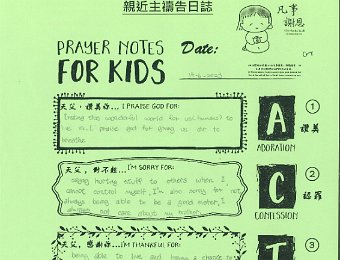 親近主禱告日誌
凡事
謝恩
PRAYER NOTES
FOR KIDS
Date:
天父，讚美祢... I PRAISE GOD FOR:
wonderful world for us humans? to
I praise god for giving us air to
breathe
A
ADORATION
①
讚美
天父，對不起... I'M SORRY FOR:
saying hurtful stuff to others when I
cannot control myself, I'm also sorry for not
always being able to be a good sister, I
always not care about my mother
C
CONFESSION
②
認罪
天父，感謝祢... I'M THANKFUL FOR:
being able to live and have a chance to
T
③